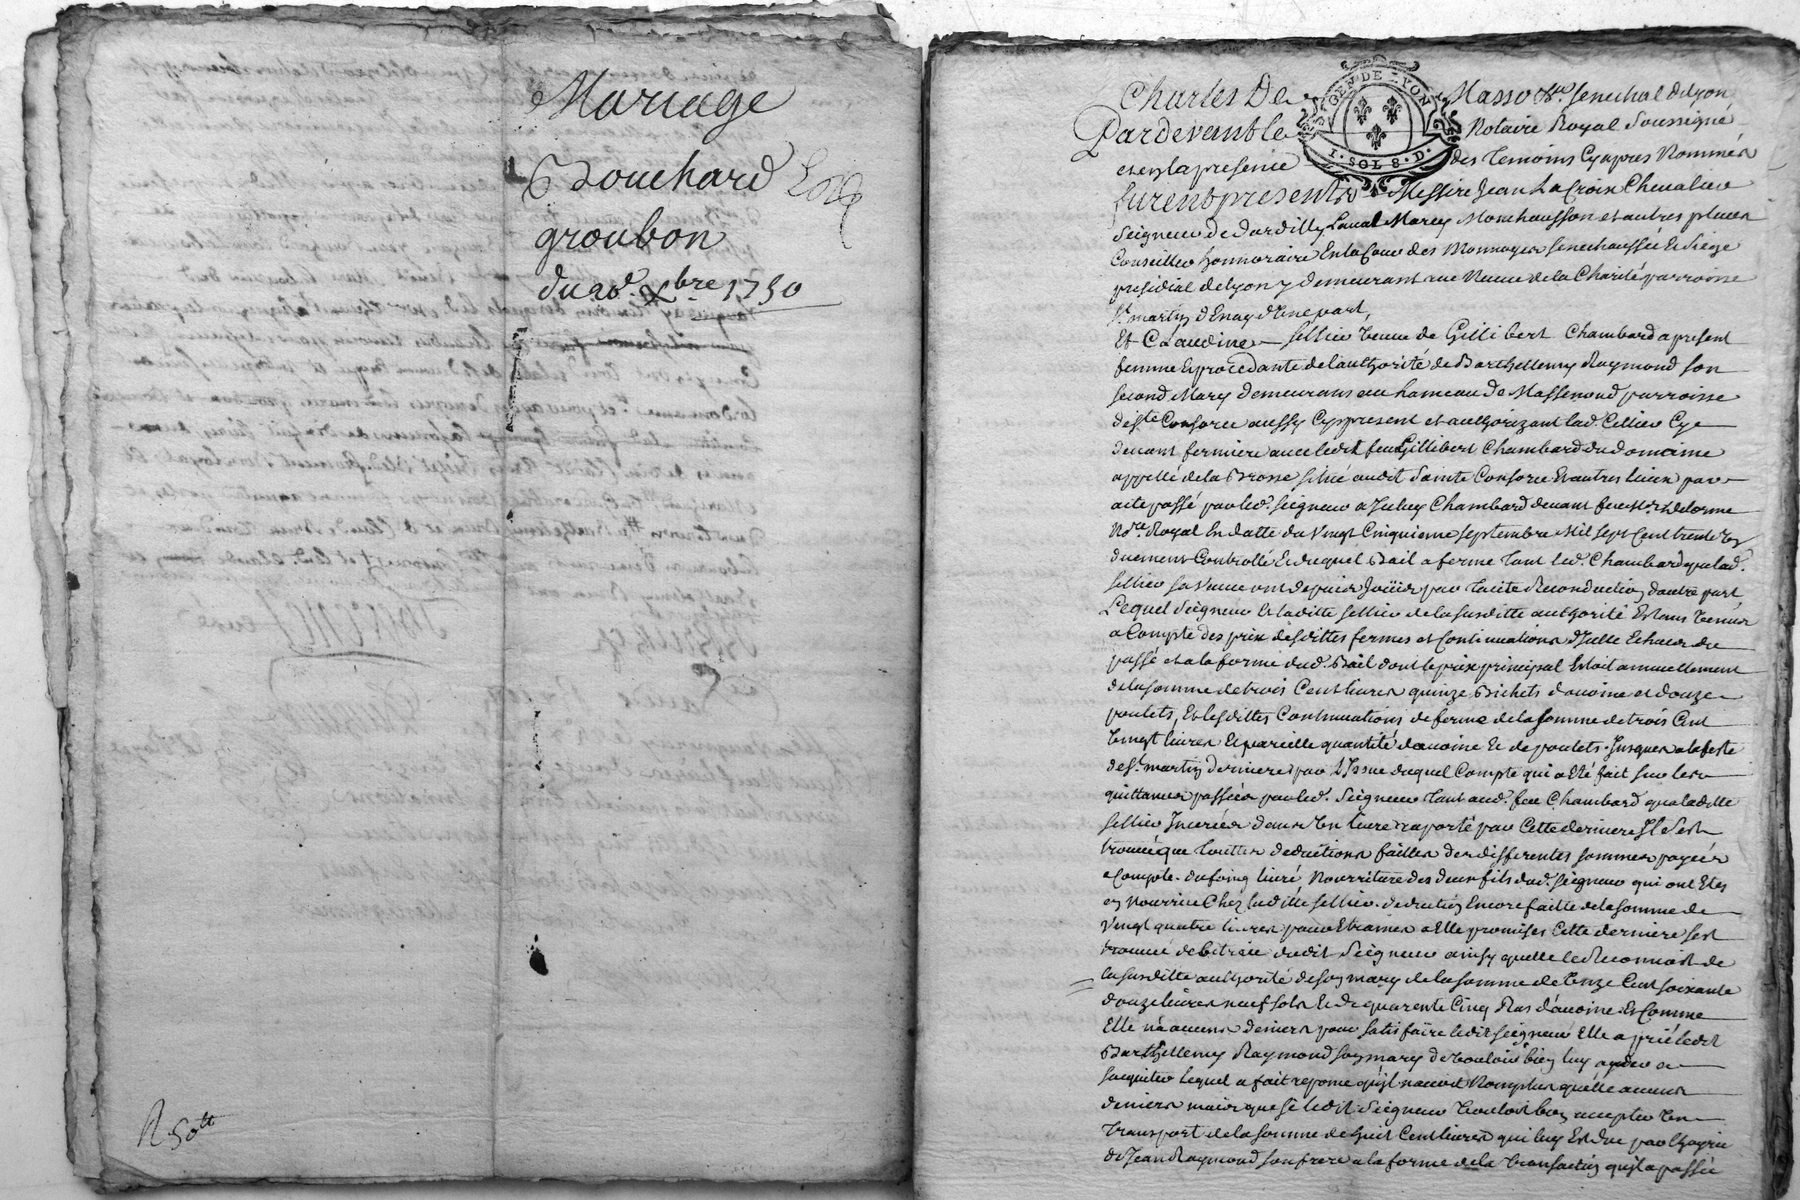 Mariage
Bouchard
groubon
du 28e. xbre 1750
R. 50tt
Charles De Masso Sr. senechal de Lyon
GEN. DE LYON
I. SOL 8. D.
Pardevant le Notaire Royal Soussigné
et en la presence des temoins cy apres Nommés
furent presents Messire Jean La Croix Chevalier
Seigneur de Dardilly Laval Marcy Monchausson et autres places
Conseiller honnoraire En la Cour des Monnoyes senechaussée et Siege
presidial de Lyon y demeurant rue Neuve de la Charité parroisse
St. martin d'Enay d'une part,
Et Claudine sellier veuve de Gillibert Chambard a present
femme et procedante de l'authorité de Barthellemy Raymond son
second Mary demeurans au hameau de Massenoud parroisse
de ste Consorce aussy cy present et authorizant lad. Cellier cy
devant fermiere avec ledit feu Gillibert Chambard du domaine
appellé de la Brosse situé audit Sainte Consorce Et autres lieux par
acte passé par led. seigneur audit Chambard devant feu Me Delorme
Nore. Royal En datte du Vingt Cinquieme septembre Mil sept Cent trente
duement Controllé Et duquel Bail a ferme tant led. Chambard que lad.
sellier sa veuve ont depuis Joüis par tacite Reconduction d'autre part,
Lequel Seigneur Et laditte sellier de la susditte authorité Estans venus
a Compte des prix desdittes fermes et Continuations d'Icelle Echues du
passé et a la forme dud. Bail dont le prix principal Estoit annuellement
de la somme de trois Cent livres quinze Bichets d'avoine et douze
poulets, Et lesdittes Continuations de ferme de la somme de trois Cent
vingt livres Et pareille quantité d'avoine Et de poulets. Jusques a la feste
de St. martin derniere par L'Issue duquel Compte qui a Eté fait sur les
quittances passées par led. Seigneur tant aud. feu Chambard qu'a laditte
sellier Inserées dans un livre raporté par Cette derniere Il s'est
trouvé que toutes deductions faittes des differentes sommes payées
a Compte. du foing livré Nourriture des deux fils dud. Seigneur qui ont Etes
en Nourrice Chez laditte sellier. deduction Encore faitte de la somme de
Vingt quatre livres pour Etraines a Elle promises Cette derniere s'est
trouvée debitrice dudit Seigneur ainsy qu'elle le Reconnoit de
la susditte authorité de son mary de la somme de onze Cent soixante
douze livres neuf sols Et de quarente Cinq Ras d'avoine Et Comme
Elle n'a aucuns deniers pour satisfaire ledit seigneur Elle a prié ledit
Barthellemy Raymond son mary de vouloir bien luy ayder a
s'acquiter lequel a fait reponse qu'il n'avoit Non plus qu'elle aucuns
deniers mais que si ledit Seigneur vouloit bien accepter un
Transport de la somme de huit Cent livres qui luy Est due par l'hoyrie
de Jean Raymond son frere a la forme de la transaction qu'il a passée